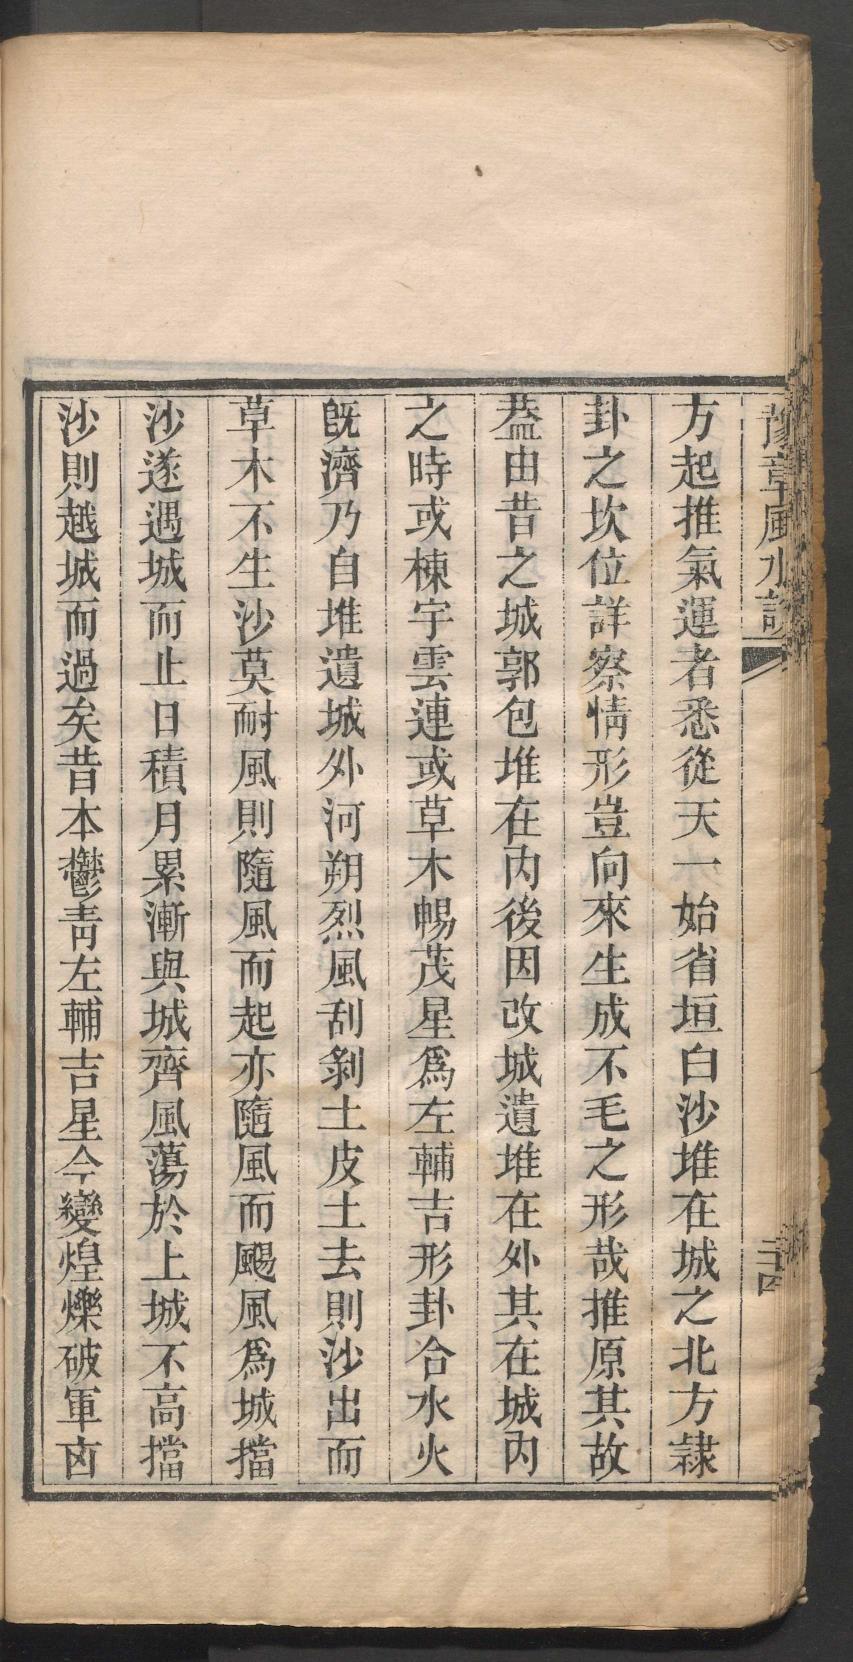 豫章風水論
二十四
方起推氣運者悉從天一始省垣白沙堆在城之北方隷
卦之坎位詳察情形豈向來生成不毛之形哉推原其故
葢由昔之城郭包堆在內後因改城遺堆在外其在城內
之時或棟宇雲連或草木暢茂星爲左輔吉形卦合水火
旣濟乃自堆遺城外河朔烈風刮剝土皮土去則沙出而
草木不生沙莫耐風則隨風而起亦隨風而颺風爲城擋
沙遂遇城而止日積月累漸與城齊風蕩於上城不高擋
沙則越城而過矣昔本鬱靑左輔吉星今變煌爍破軍卤